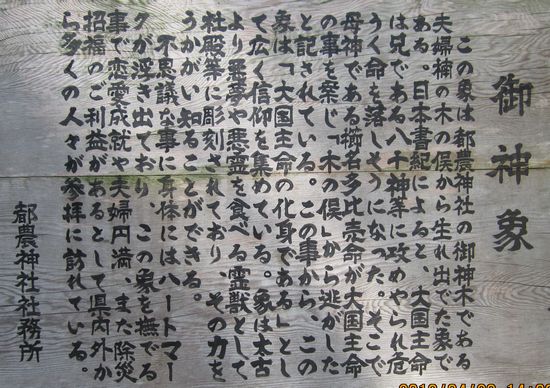 御神象
この象は都農神社の御神木である
夫婦楠の木の俣から生れ出でた象で
ある。日本書紀によると、大国主命
は兄である八十神等に攻めやられ危
うく命を落しそうになった。そこで
母神である櫛名多比売命が大国主命
の事を案じ「木の俣」から逃がした
と記されている。この事から、この
象は「大国主命の化身である」とし
て広く信仰を集めている。象は太古
より悪夢や悪霊を食べる霊獣として
社殿等に彫刻されており、その力を
うかがい知ることができる。
不思議な事に身体にはハートマー
クが浮き出ており、この象を撫でる
事で恋愛成就や夫婦円満、また除災
招福のご利益があるとして県内外か
ら多くの人々が参拝に訪れている。
都農神社社務所